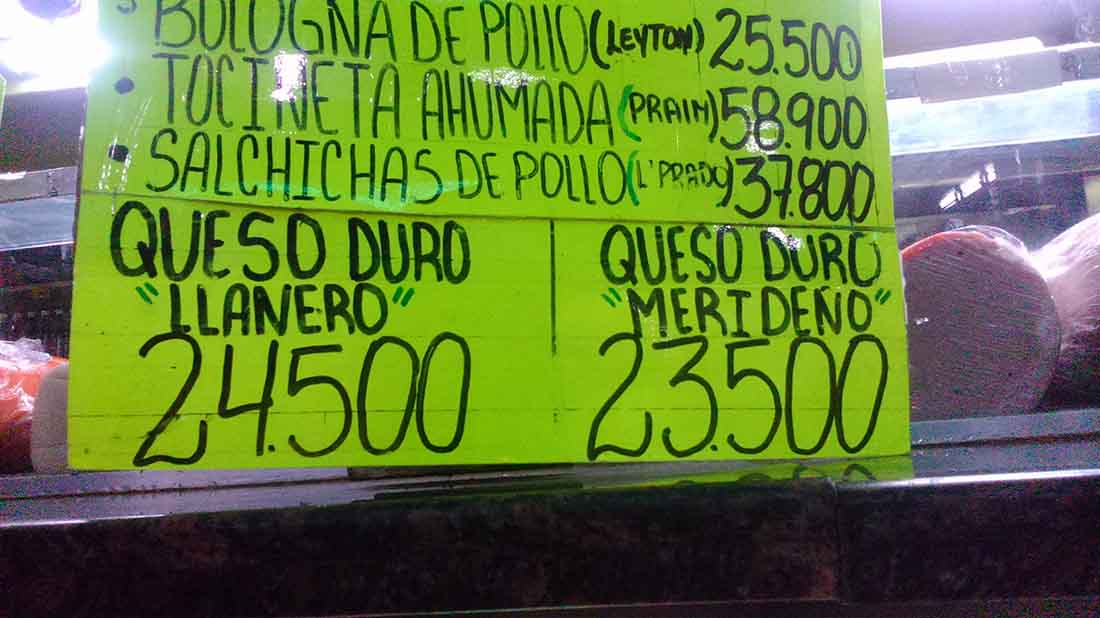 BOLOGNA DE POLLO (LEYTON) 25.500
• TOCINETA AHUMADA (PRAIM) 58.900
• SALCHICHAS DE POLLO (L'PRADO) 37.800
QUESO DURO
"LLANERO"
24.500
QUESO DURO
"MERIDEÑO"
23.500